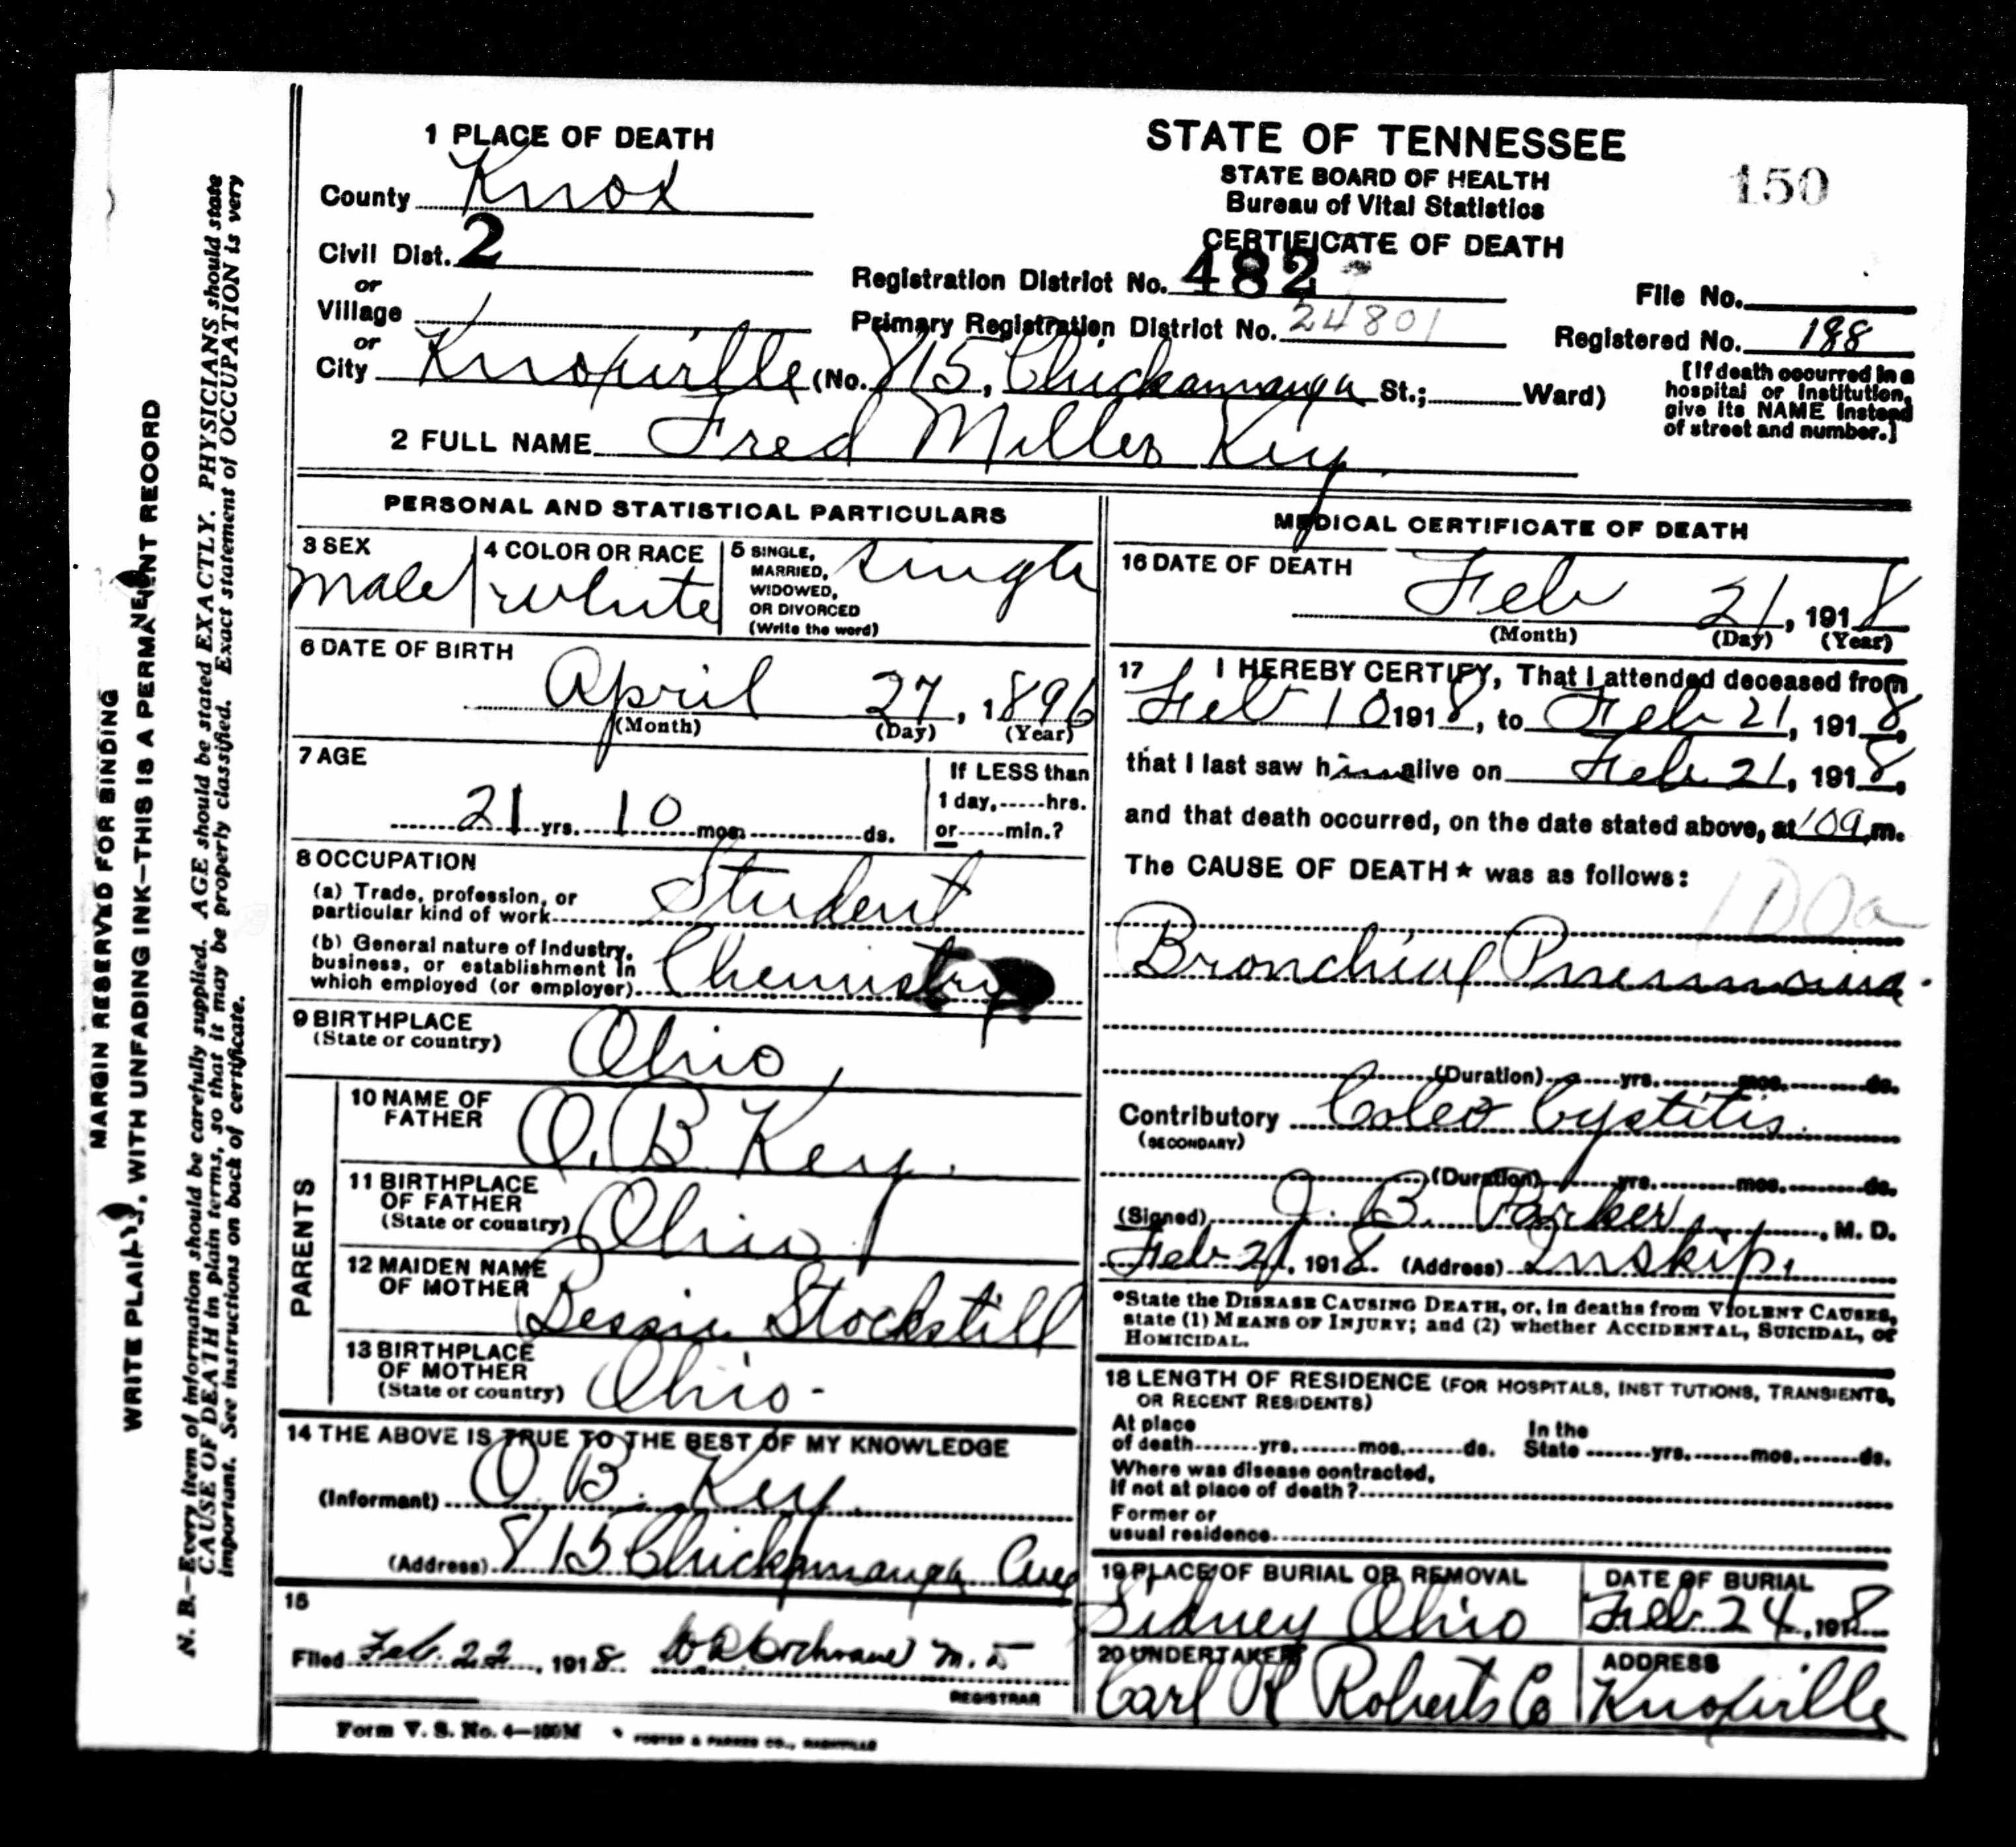 MARGIN RESERVED FOR BINDING
WRITE PLAINLY, WITH UNFADING INK—THIS IS A PERMANENT RECORD
N. B.—Every item of information should be carefully supplied. AGE should be stated EXACTLY. PHYSICIANS should state
CAUSE OF DEATH in plain terms, so that it may be properly classified. Exact statement of OCCUPATION is very
important. See instructions on back of certificate.
1 PLACE OF DEATH
County Knox
Civil Dist. 2
or
Village
or
City Knoxville (No. 815, Chickamauga St.; Ward)
STATE OF TENNESSEE
STATE BOARD OF HEALTH
Bureau of Vital Statistics
CERTIFICATE OF DEATH
150
Registration District No. 482
File No.
Primary Registration District No. 24801
Registered No. 188
[If death occurred in a
hospital or institution,
give its NAME instead
of street and number.]
2 FULL NAME Fred Miller Key
PERSONAL AND STATISTICAL PARTICULARS
3 SEX
male
4 COLOR OR RACE
white
5 SINGLE,
MARRIED,
WIDOWED,
OR DIVORCED
(Write the word)
single
6 DATE OF BIRTH
April 27, 1896
(Month) (Day) (Year)
7 AGE
21 yrs. 10 mos. ds.
If LESS than
1 day, hrs.
or min.?
8 OCCUPATION
(a) Trade, profession, or
particular kind of work Student
(b) General nature of Industry,
business, or establishment in
which employed (or employer) Chemistry
9 BIRTHPLACE
(State or country)
Ohio
PARENTS
10 NAME OF
FATHER
O. B. Key.
11 BIRTHPLACE
OF FATHER
(State or country) Ohio
12 MAIDEN NAME
OF MOTHER
Bessie Stockstill
13 BIRTHPLACE
OF MOTHER
(State or country) Ohio-
14 THE ABOVE IS TRUE TO THE BEST OF MY KNOWLEDGE
(Informant) O. B. Key.
(Address) 815 Chickamauga Ave
15
Filed Feb. 22, 1918 Cochrane M.D
REGISTRAR
Form V. S. No. 4—100M
FOSTER & PARKES CO., NASHVILLE
MEDICAL CERTIFICATE OF DEATH
16 DATE OF DEATH
Feb 21, 1918
(Month) (Day) (Year)
17 I HEREBY CERTIFY, That I attended deceased from
Feb 10 1918, to Feb 21, 1918,
that I last saw him alive on Feb 21, 1918,
and that death occurred, on the date stated above, at m.
The CAUSE OF DEATH* was as follows:
100a
Bronchial Pneumonia.
(Duration) yrs. mos. ds.
Contributory Coleo Cystitis.
(SECONDARY)
(Duration) yrs. mos. ds.
(Signed) J. B. Parker, M. D.
Feb 21, 1918. (Address) Inskip,
*State the DISEASE CAUSING DEATH, or, in deaths from VIOLENT CAUSES,
state (1) MEANS OF INJURY; and (2) whether ACCIDENTAL, SUICIDAL, or
HOMICIDAL.
18 LENGTH OF RESIDENCE (FOR HOSPITALS, INST TUTIONS, TRANSIENTS,
OR RECENT RESIDENTS)
At place
of death yrs. mos. ds.
In the
State yrs. mos. ds.
Where was disease contracted,
If not at place of death?
Former or
usual residence
19 PLACE OF BURIAL OR REMOVAL
Sidney Ohio
DATE OF BURIAL
Feb. 24, 1918
20 UNDERTAKER
Carl R Roberts Co
ADDRESS
Knoxville